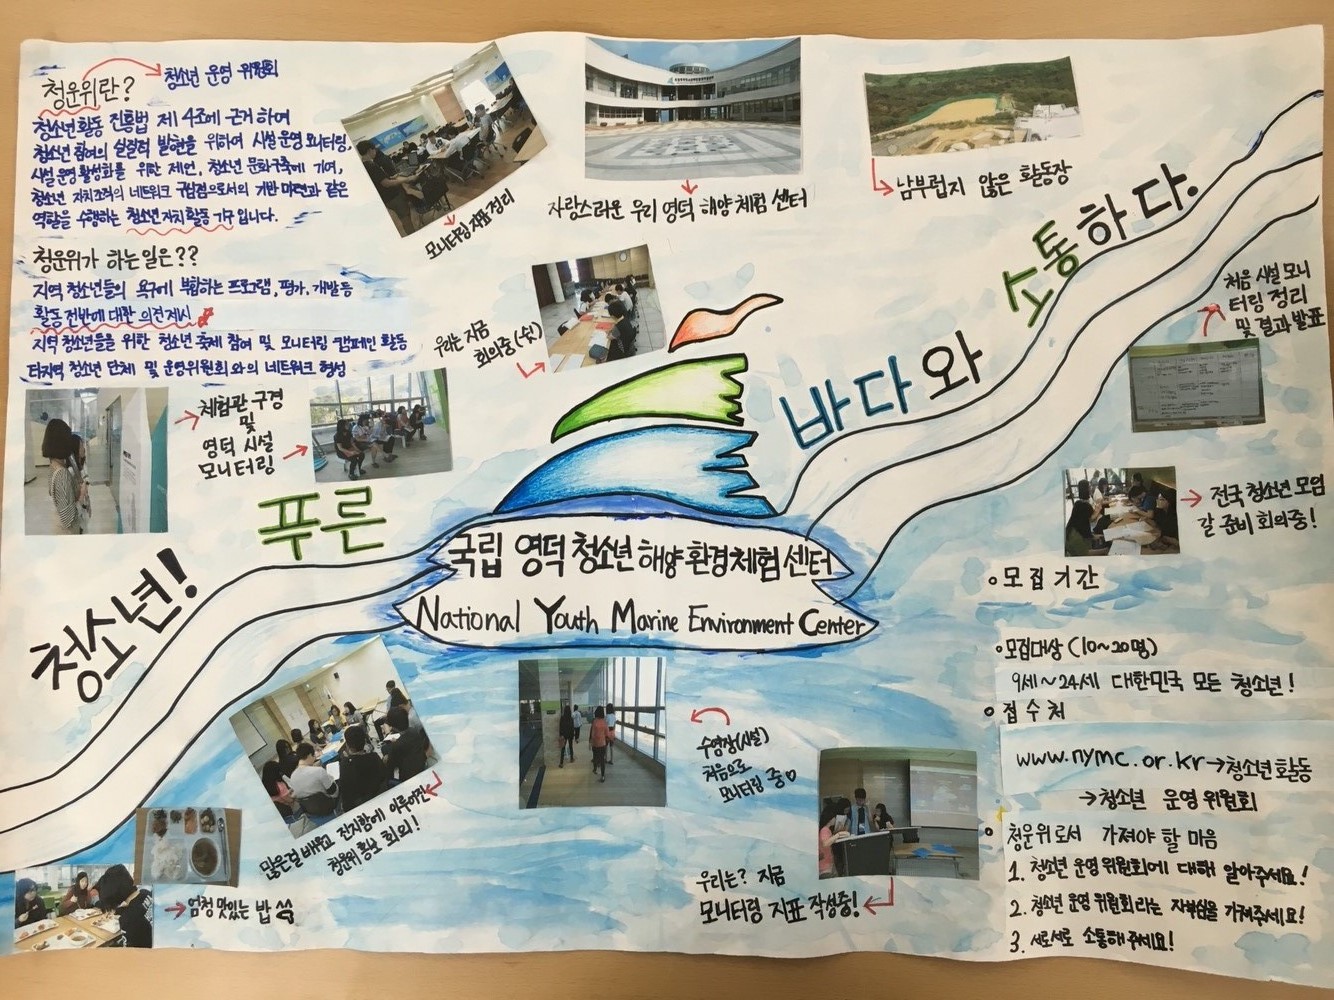 청운위란?
청소년 운영 위원회
청소년활동 진흥법 제 4조에 근거 하여
청소년 참여의 실질적 발현을 위하여 시설운영 모니터링,
시설 운영 활성화를 위한 제언, 청소년 문화구축에 기여,
청소년 자치조직의 네트워크 구심점으로서의 기반 마련과 같은
역할을 수행하는 청소년자치활동 기구 입니다.
청운위가 하는일은??
지역 청소년들의 욕구에 부합하는 프로그램, 평가, 개발 등
활동 전반에 대한 의견제시
지역 청소년들을 위한 청소년 축제 참여 및 모니터링 캠페인 활동
타지역 청소년 단체 및 운영위원회 와의 네트워크 형성
모니터링 지표 정리
자랑스러운 우리 영덕 해양체험 센터
남부럽지 않은 활동장
우리는 지금
회의중 (쉿)
체험관 구경
및
영덕 시설
모니터링
처음 시설 모니
터링 정리
및 결과 발표
전국 청소년 모임
갈 준비 회의중!
청소년! 푸른 바다와 소통하다.
국립 영덕 청소년 해양 환경체험 센터
National Youth Marine Environment Center
많은걸 배우고 진지함에 이루어진
청운위 홍보 회의!
엄청 맛있는 밥
수영장(시설)
처음으로
모니터링 중♡
우리는? 지금
모니터링 지표 작성중!
모집 기간
모집대상 (10~20명)
9세~24세 대한민국 모든 청소년!
접수처
www.nymc.or.kr→청소년활동
→청소년 운영 위원회
청운위로서 가져야 할 마음
1. 청소년 운영 위원회에 대해 알아주세요!
2. 청소년 운영 위원회라는 자부심을 가져주세요!
3. 서로서로 소통해 주세요!